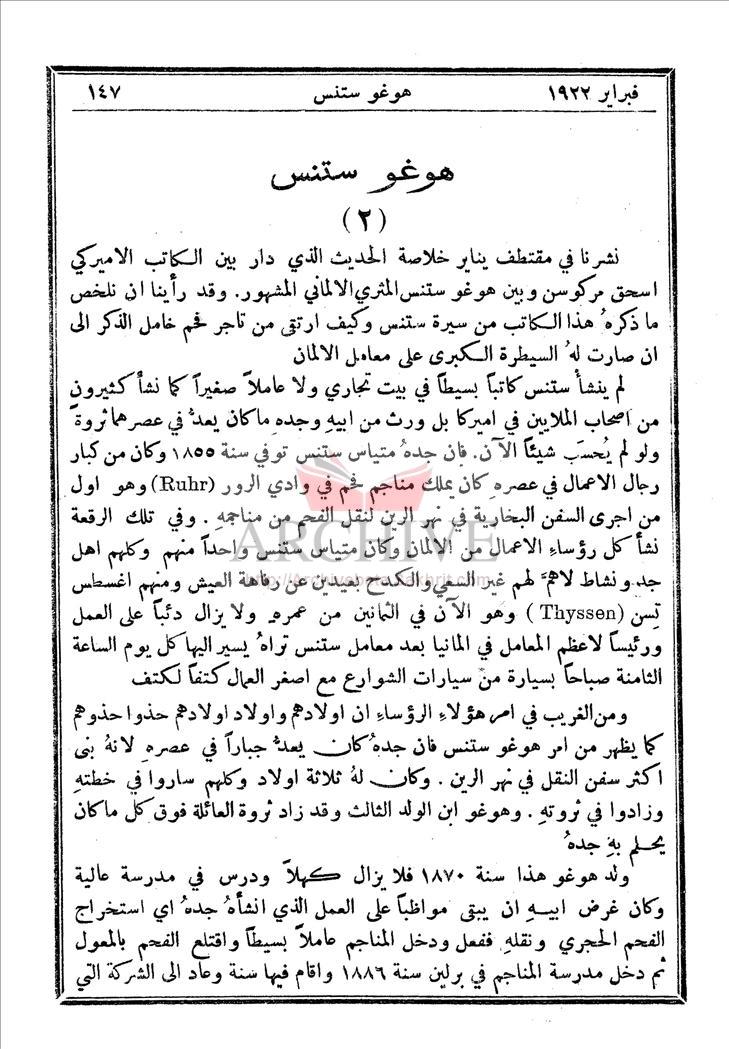 فبراير ١٩٢٢ هوغو ستنس ١٤٧
هوغو ستنس
(٢)
نشرنا في مقتطف يناير خلاصة الحديث الذي دار بين الكاتب الاميركي
اسحق مركوسن وبين هوغو ستنس المثري الالماني المشهور. وقد رأينا ان نلخص
ما ذكرهُ هذا الكاتب من سيرة ستنس وكيف ارتقى من تاجر فحم خامل الذكر الى
ان صارت لهُ السيطرة الكبرى على معامل الالمان
لم ينشأ ستنس كاتباً بسيطاً في بيت تجاري ولا عاملاً صغيراً كما نشأ كثيرون
من اصحاب الملايين في اميركا بل ورث من ابيهِ وجده ما كان يعدُّ في عصرهما ثروة
ولو لم يُحسَب شيئاً الآن. فان جدهُ متياس ستنس توفي سنة ١٨٥٥ وكان من كبار
رجال الاعمال في عصرهِ كان يملك مناجم فحم في وادي الرور (Ruhr) وهو اول
من اجرى السفن البخارية في نهر الرين لنقل الفحم من مناجمهِ. وفي تلك الرقعة
نشأ كل رؤساءِ الاعمال من الالمان وكان متياس ستنس واحداً منهم وكلهم اهل
جد ونشاط لا همَّ لهم غير السعي والكدح بعيدين عن رفاهة العيش ومنهم اغسطس
تِسن (Thyssen) وهو الآن في الثمانين من عمرهِ ولا يزال دئباً على العمل
ورئيساً لاعظم المعامل في المانيا بعد معامل ستنس تراهُ يسير اليها كل يوم الساعة
الثامنة صباحاً بسيارة من سيارات الشوارع مع اصغر العمال كتفاً لكتف
ومن الغريب في امر هؤلاءِ الرؤساءِ ان اولادهم واولاد اولادهم حذوا حذوهم
كما يظهر من امر هوغو ستنس فان جدهُ كان يعدُّ جباراً في عصرهِ لانهُ بنى
اكثر سفن النقل في نهر الرين. وكان لهُ ثلاثة اولاد وكلهم ساروا في خطتهِ
وزادوا في ثروتهِ. وهوغو ابن الولد الثالث وقد زاد ثروة العائلة فوق كل ما كان
يحلم بهِ جدهُ
ولد هوغو هذا سنة ١٨٧٠ فلا يزال كهلاً ودرس في مدرسة عالية
وكان غرض ابيهِ ان يبقى مواظباً على العمل الذي انشأهُ جدهُ اي استخراج
الفحم الحجري ونقلهِ ففعل ودخل المناجم عاملاً بسيطاً واقتلع الفحم بالمعول
ثم دخل مدرسة المناجم في برلين سنة ١٨٨٦ واقام فيها سنة وعاد الى الشركة التي
ARCHIVE
http://Archivebeta.Sakhrit.com